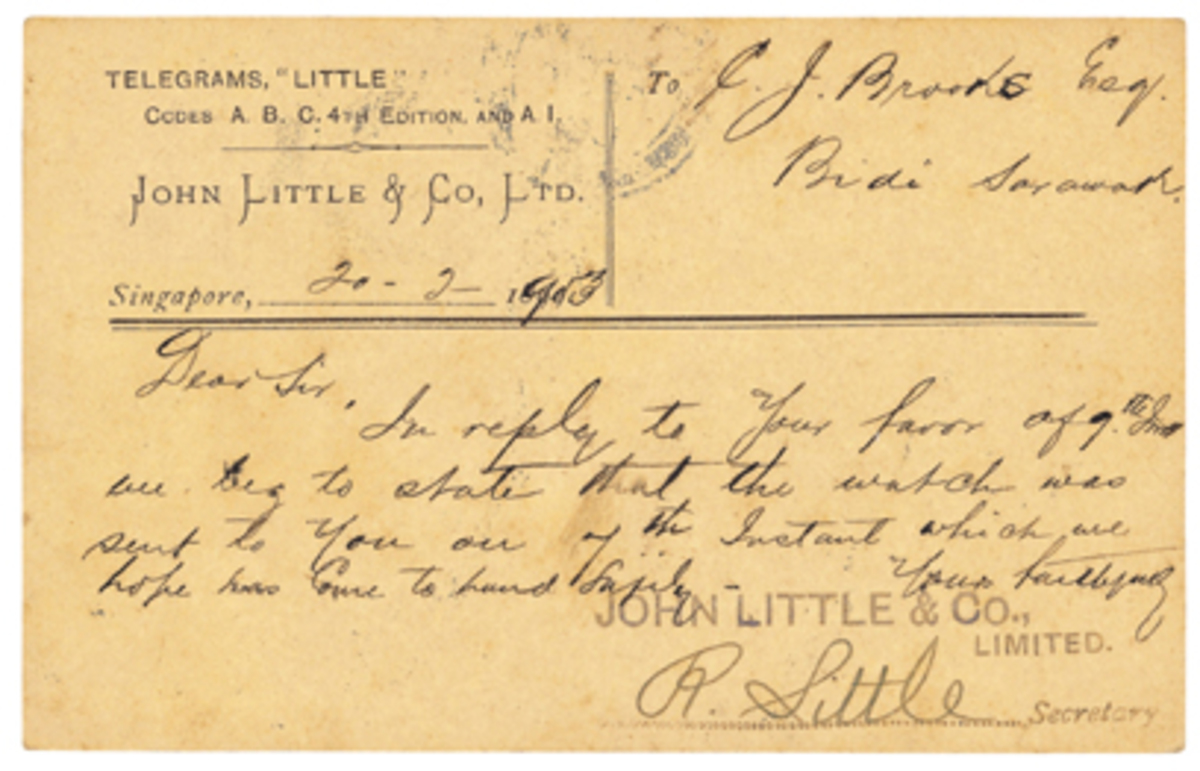 TELEGRAMS, "LITTLE"
CODES A. B. C. 4TH EDITION. AND A I.
JOHN LITTLE & CO, LTD.
Singapore, 20 - 2 - 1903
To C. J. Brooks Esq.
Bidi Sarawak.
Dear Sir,
In reply to Your favor of 9th Inst
we beg to state that the watch was
sent to You on 7th Instant which we
hope has Come to hand Safely - Yours faithfully
JOHN LITTLE & CO.,
LIMITED.
R. Little Secretary